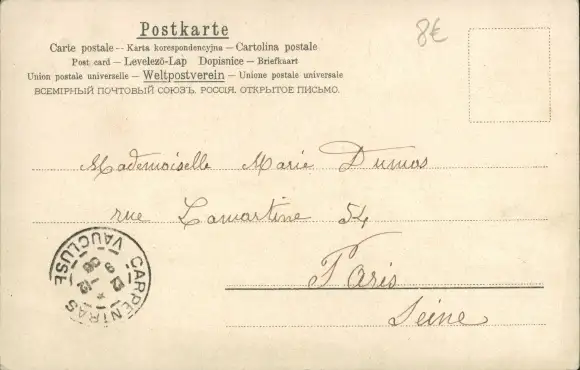 Postkarte
8€
Carte postale -- Karta korespondencyjna – Cartolina postale
Post card – Levelező-Lap Dopisnice – Briefkaart
Union postale universelle – Weltpostverein – Unione postale universale
ВСЕМІРНЫЙ ПОЧТОВЫЙ СОЮЗЪ. РОССІЯ. ОТКРЫТОЕ ПИСЬМО.
Mademoiselle Marie Dumas
rue Lamartine 54
Paris
Seine
CARPENTRAS
VAUCLUSE